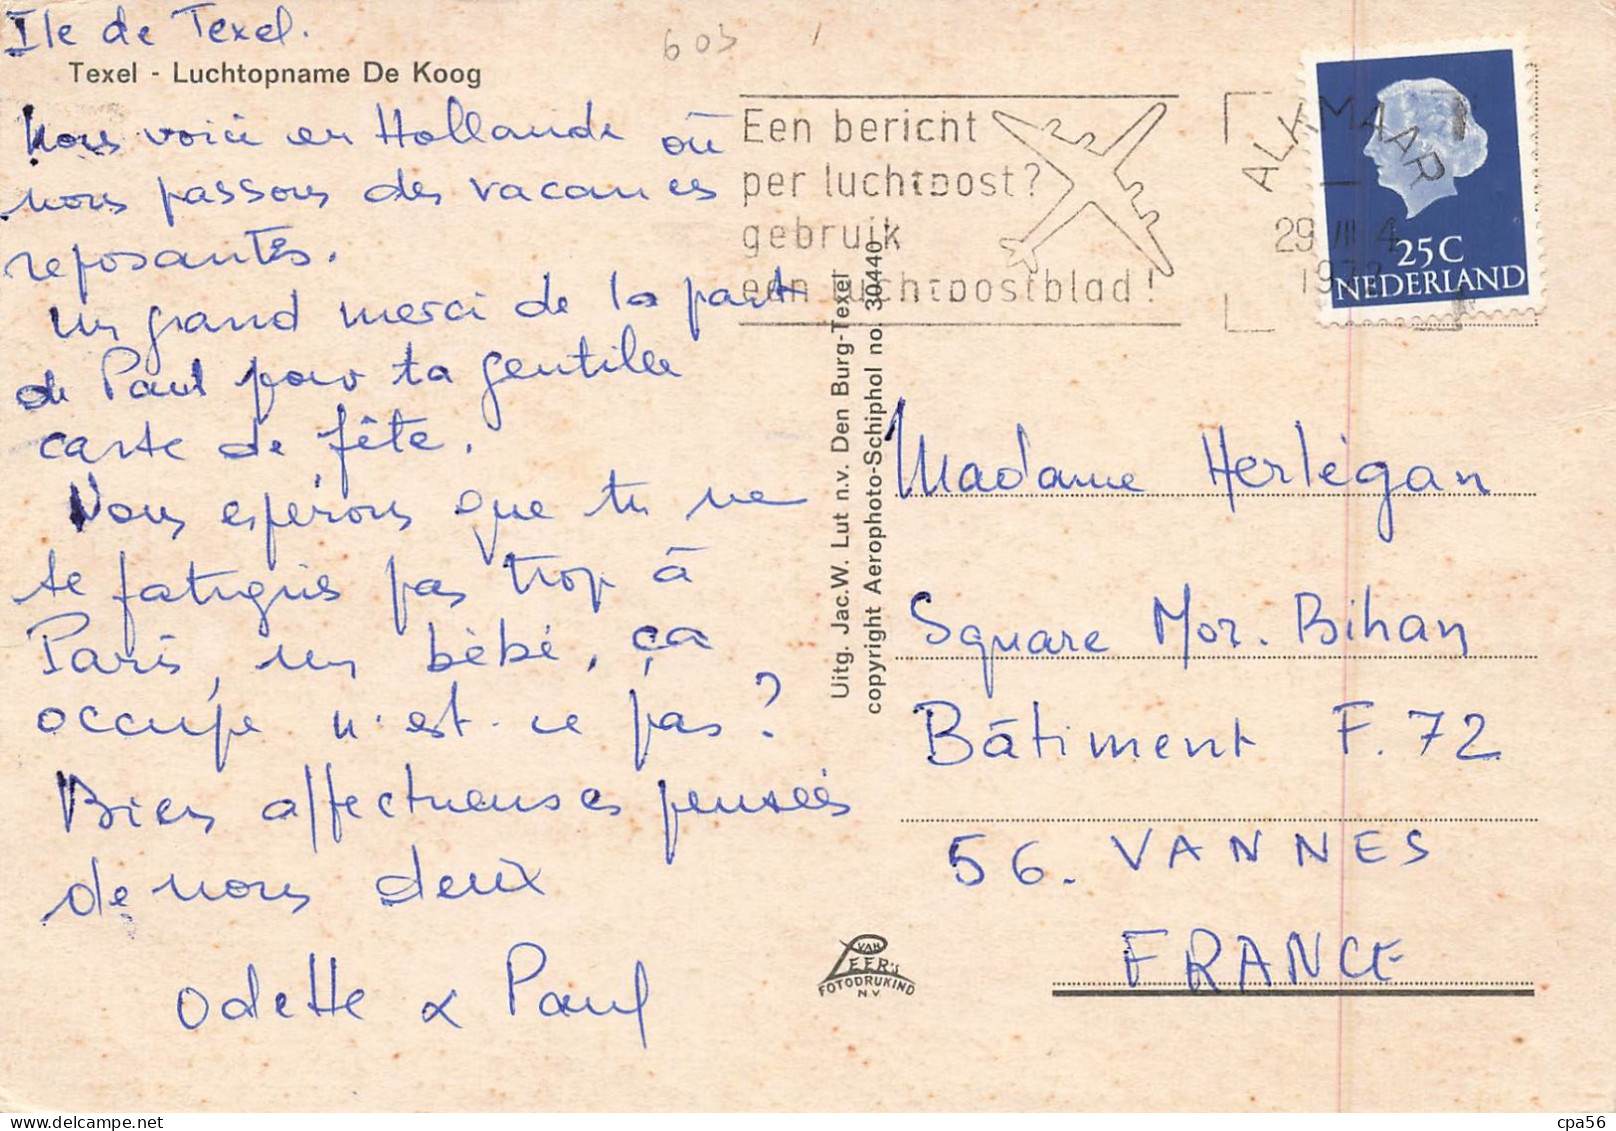 Ile de Texel.
Texel - Luchtopname De Koog
603
Nous voici en Hollande où
nous passons des vacances
reposantes.
Un grand merci de la part
de Paul pour ta gentille
carte de fête.
Nous espérons que tu ne
te fatigues pas trop à
Paris, un bébé, ça
occupe n'est-ce pas ?
Bien affectueuses pensées
de nous deux
Odette & Paul
Een bericht
per luchtpost?
gebruik
een luchtpostblad!
ALKMAAR
29 VII 4
197
25C
NEDERLAND
Uitg. Jac.W. Lut n.v. Den Burg-Texel
copyright Aerophoto-Schiphol no. 30440
Madame Herlégan
Square Mor. Bihan
Bâtiment F. 72
56. VANNES
FRANCE
VAN
LEER'S
FOTODRUKIND
N.V
cpa56